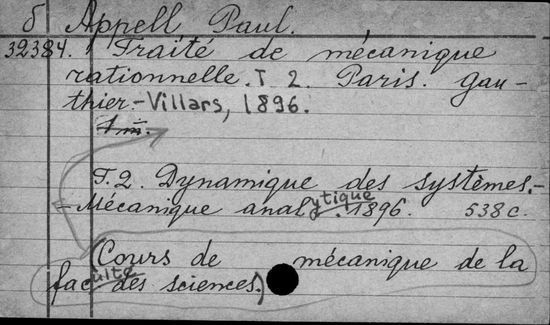 б Appell Paul.
32384. Traité de mécanique
rationnelle. T 2. Paris. gau-
thier-Villars, 1896.
T.2. Dynamique des systèmes.-
- Mécanique analytique. 1896. 538 c.
(Cours de mécanique de la
faculté des sciences.)